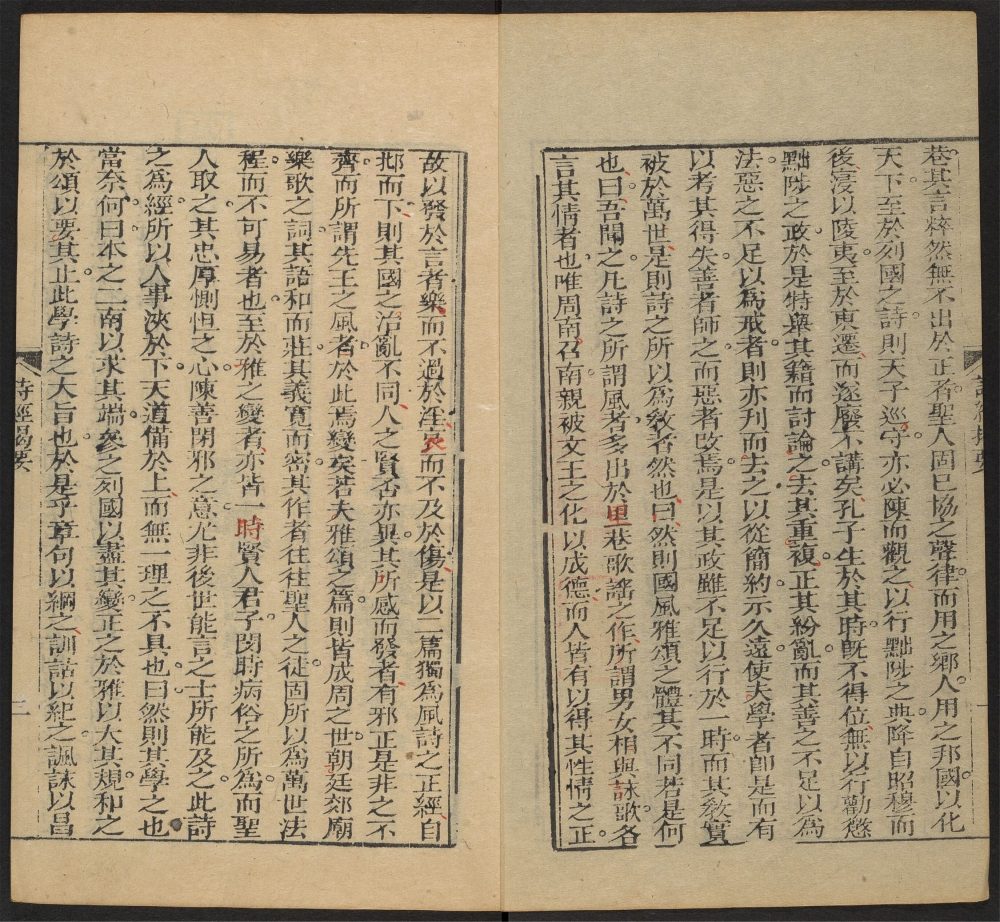 巷其言粹然無不出於正者聖人固已協之聲律而用之鄉人用之邦國以化
天下至於列國之詩則天子巡守亦必陳而觀之以行黜陟之典降自昭穆而
後寖以陵夷至於東遷而遂廢不講矣孔子生於其時既不得位無以行勸懲
黜陟之政於是特舉其籍而討論之去其重複正其紛亂而其善之不足以為
法惡之不足以為戒者則亦刋而去之以從簡約示久遠使夫學者卽是而有
以考其得失善者師之而惡者改焉是以其政雖不足以行於一時而其教實
被於萬世是則詩之所以為教者然也曰然則國風雅頌之體其不同若是何
也曰吾聞之凡詩之所謂風者多出於里巷歌謠之作所謂男女相與詠歌各
言其情者也唯周南召南親被文王之化以成德而人皆有以得其性情之正
故以發於言者樂而不過於淫哀而不及於傷是以二篇獨為風詩之正經自
邶而下則其國之治亂不同人之賢否亦異其所感而發者有邪正是非之不
齊而所謂先王之風者於此焉變矣若夫雅頌之篇則皆成周之世朝廷郊廟
樂歌之詞其語和而莊其義寛而密其作者往往聖人之徒固所以為萬世法
程而不可易者也至於雅之變者亦皆一時賢人君子閔時病俗之所為而聖
人取之其忠厚惻怛之心陳善閉邪之意尤非後世能言之士所能及之此詩
之為經所以人事浹於下天道備於上而無一理之不具也曰然則其學之也
當奈何曰本之二南以求其端參之列國以盡其變正之於雅以大其規和之
於頌以要其止此學詩之大旨也於是乎章句以綱之訓詁以紀之諷詠以昌
詩經揭要
二